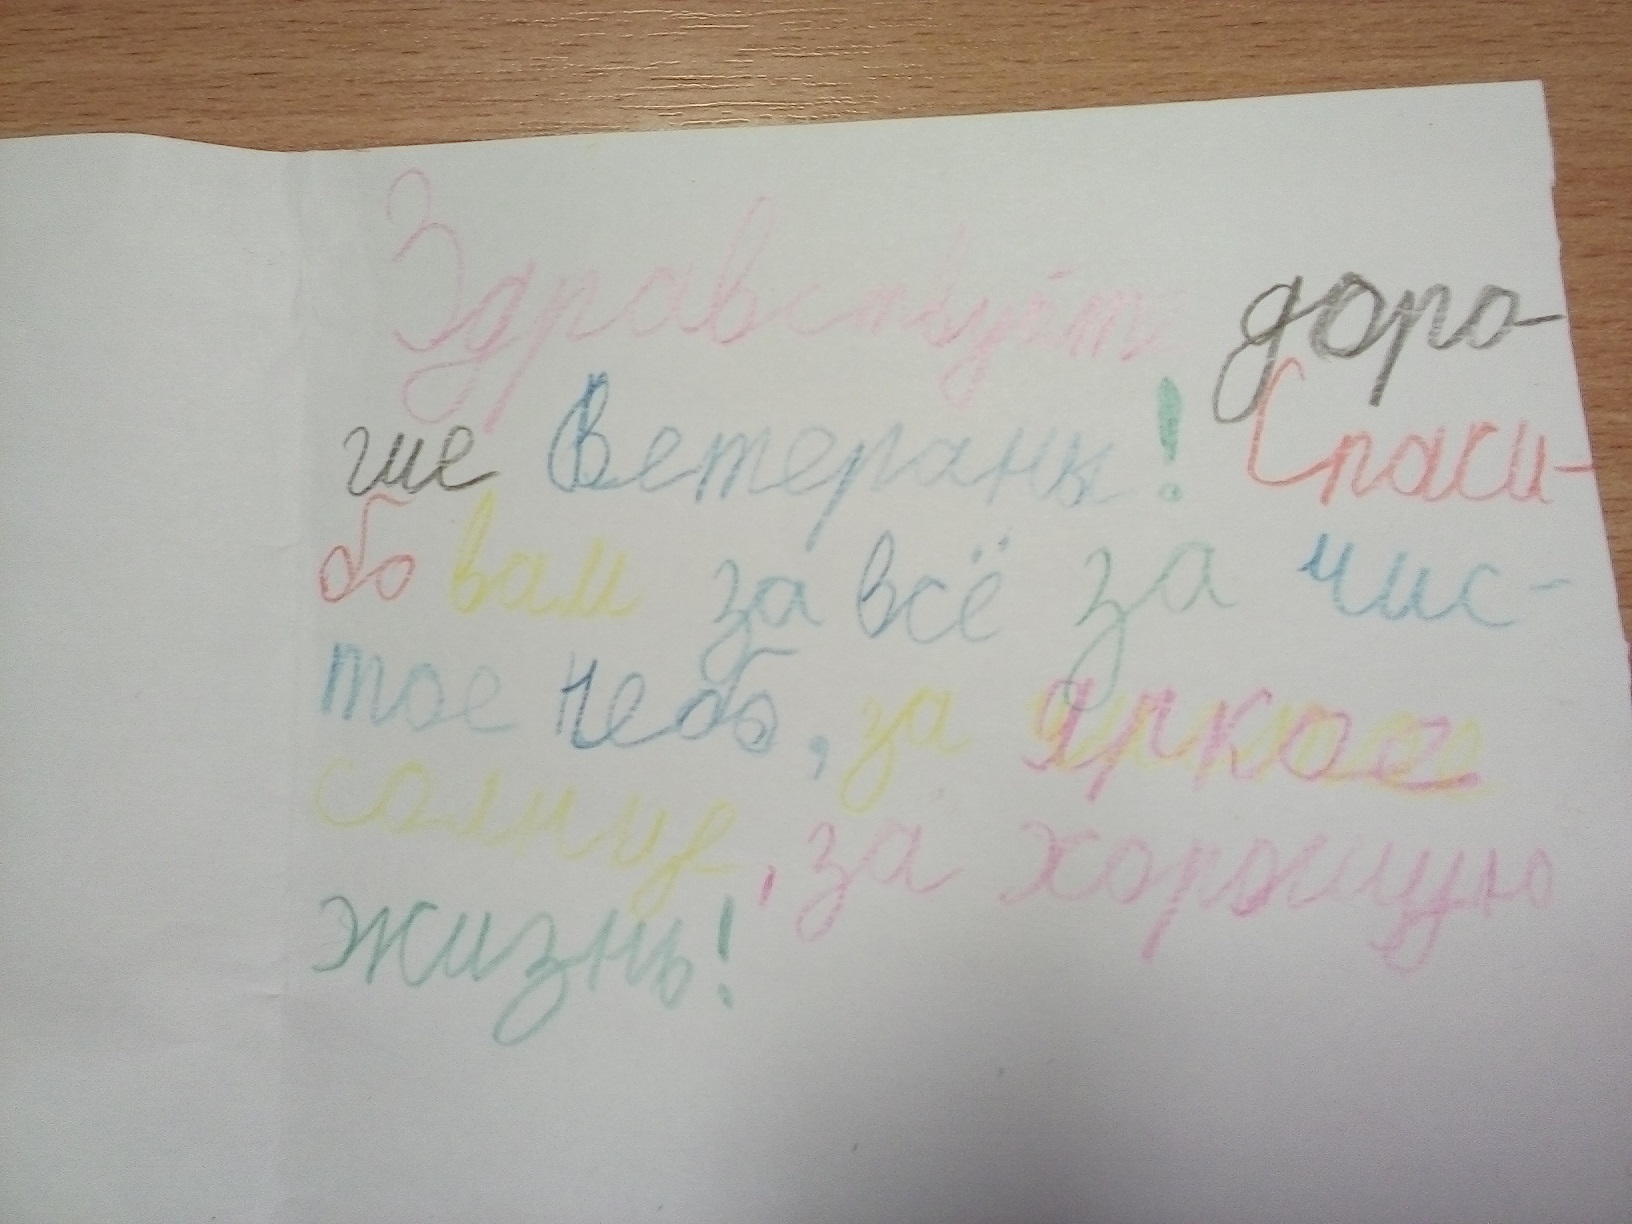 Здравствуйт доро-
гие Ветераны! Спаси-
бо вам за всё за чис-
тое небо, за яркое
солнце, за хорошую
жизнь!